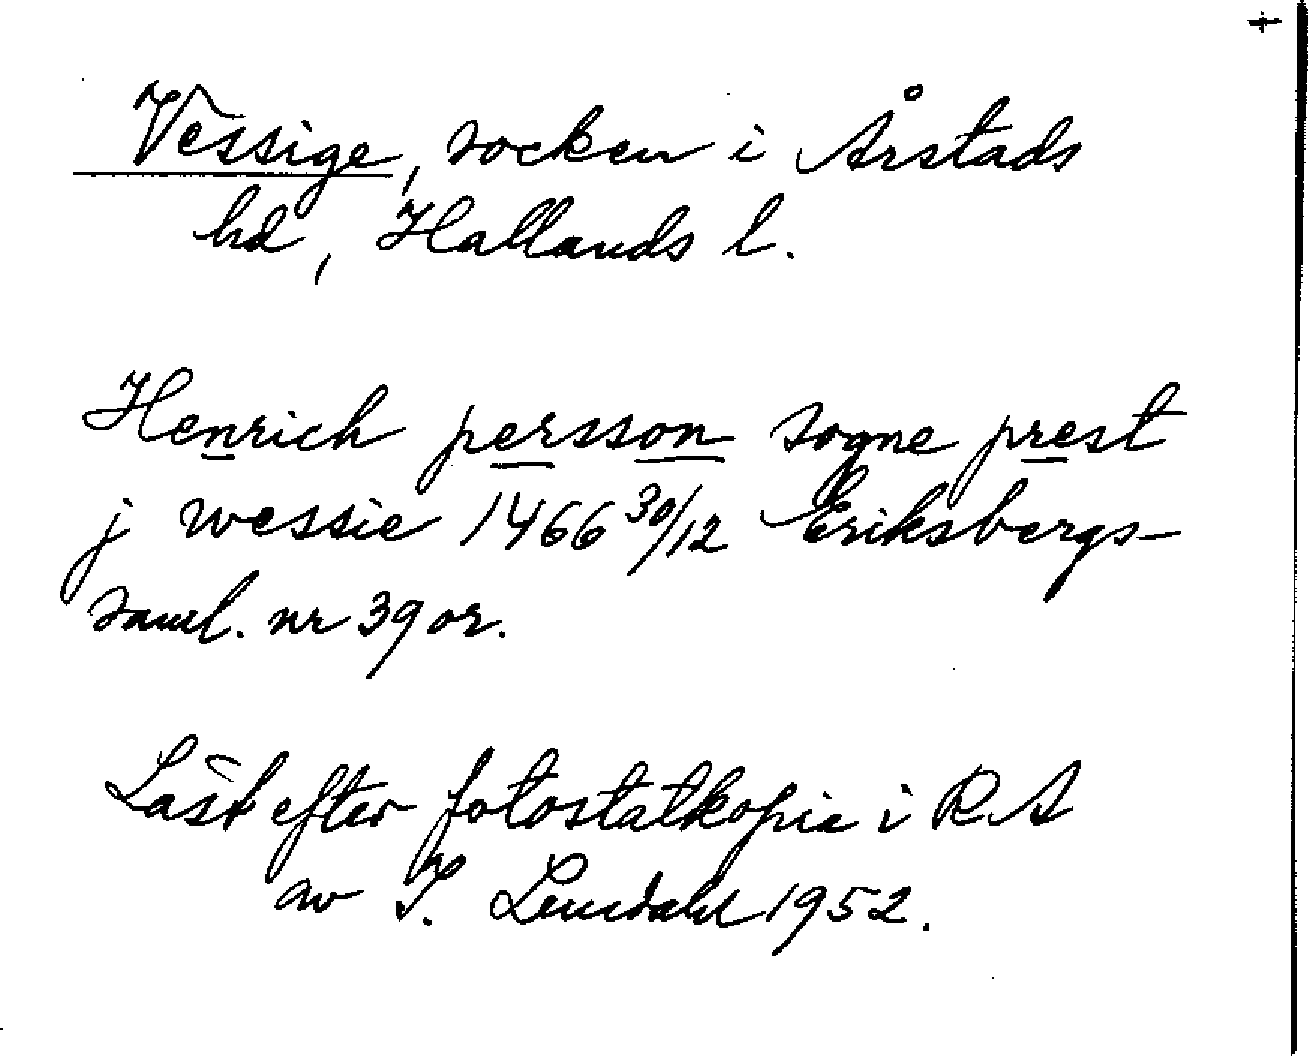 Vessige, socken i Årstads
hd, Hallands l.
Henrich persson sogne prest
j wessie 1466 30/12 Eriksbergs-
saml. nr 39 or.
Läst efter fotostatkopia i RA
av I. Lundahl 1952.